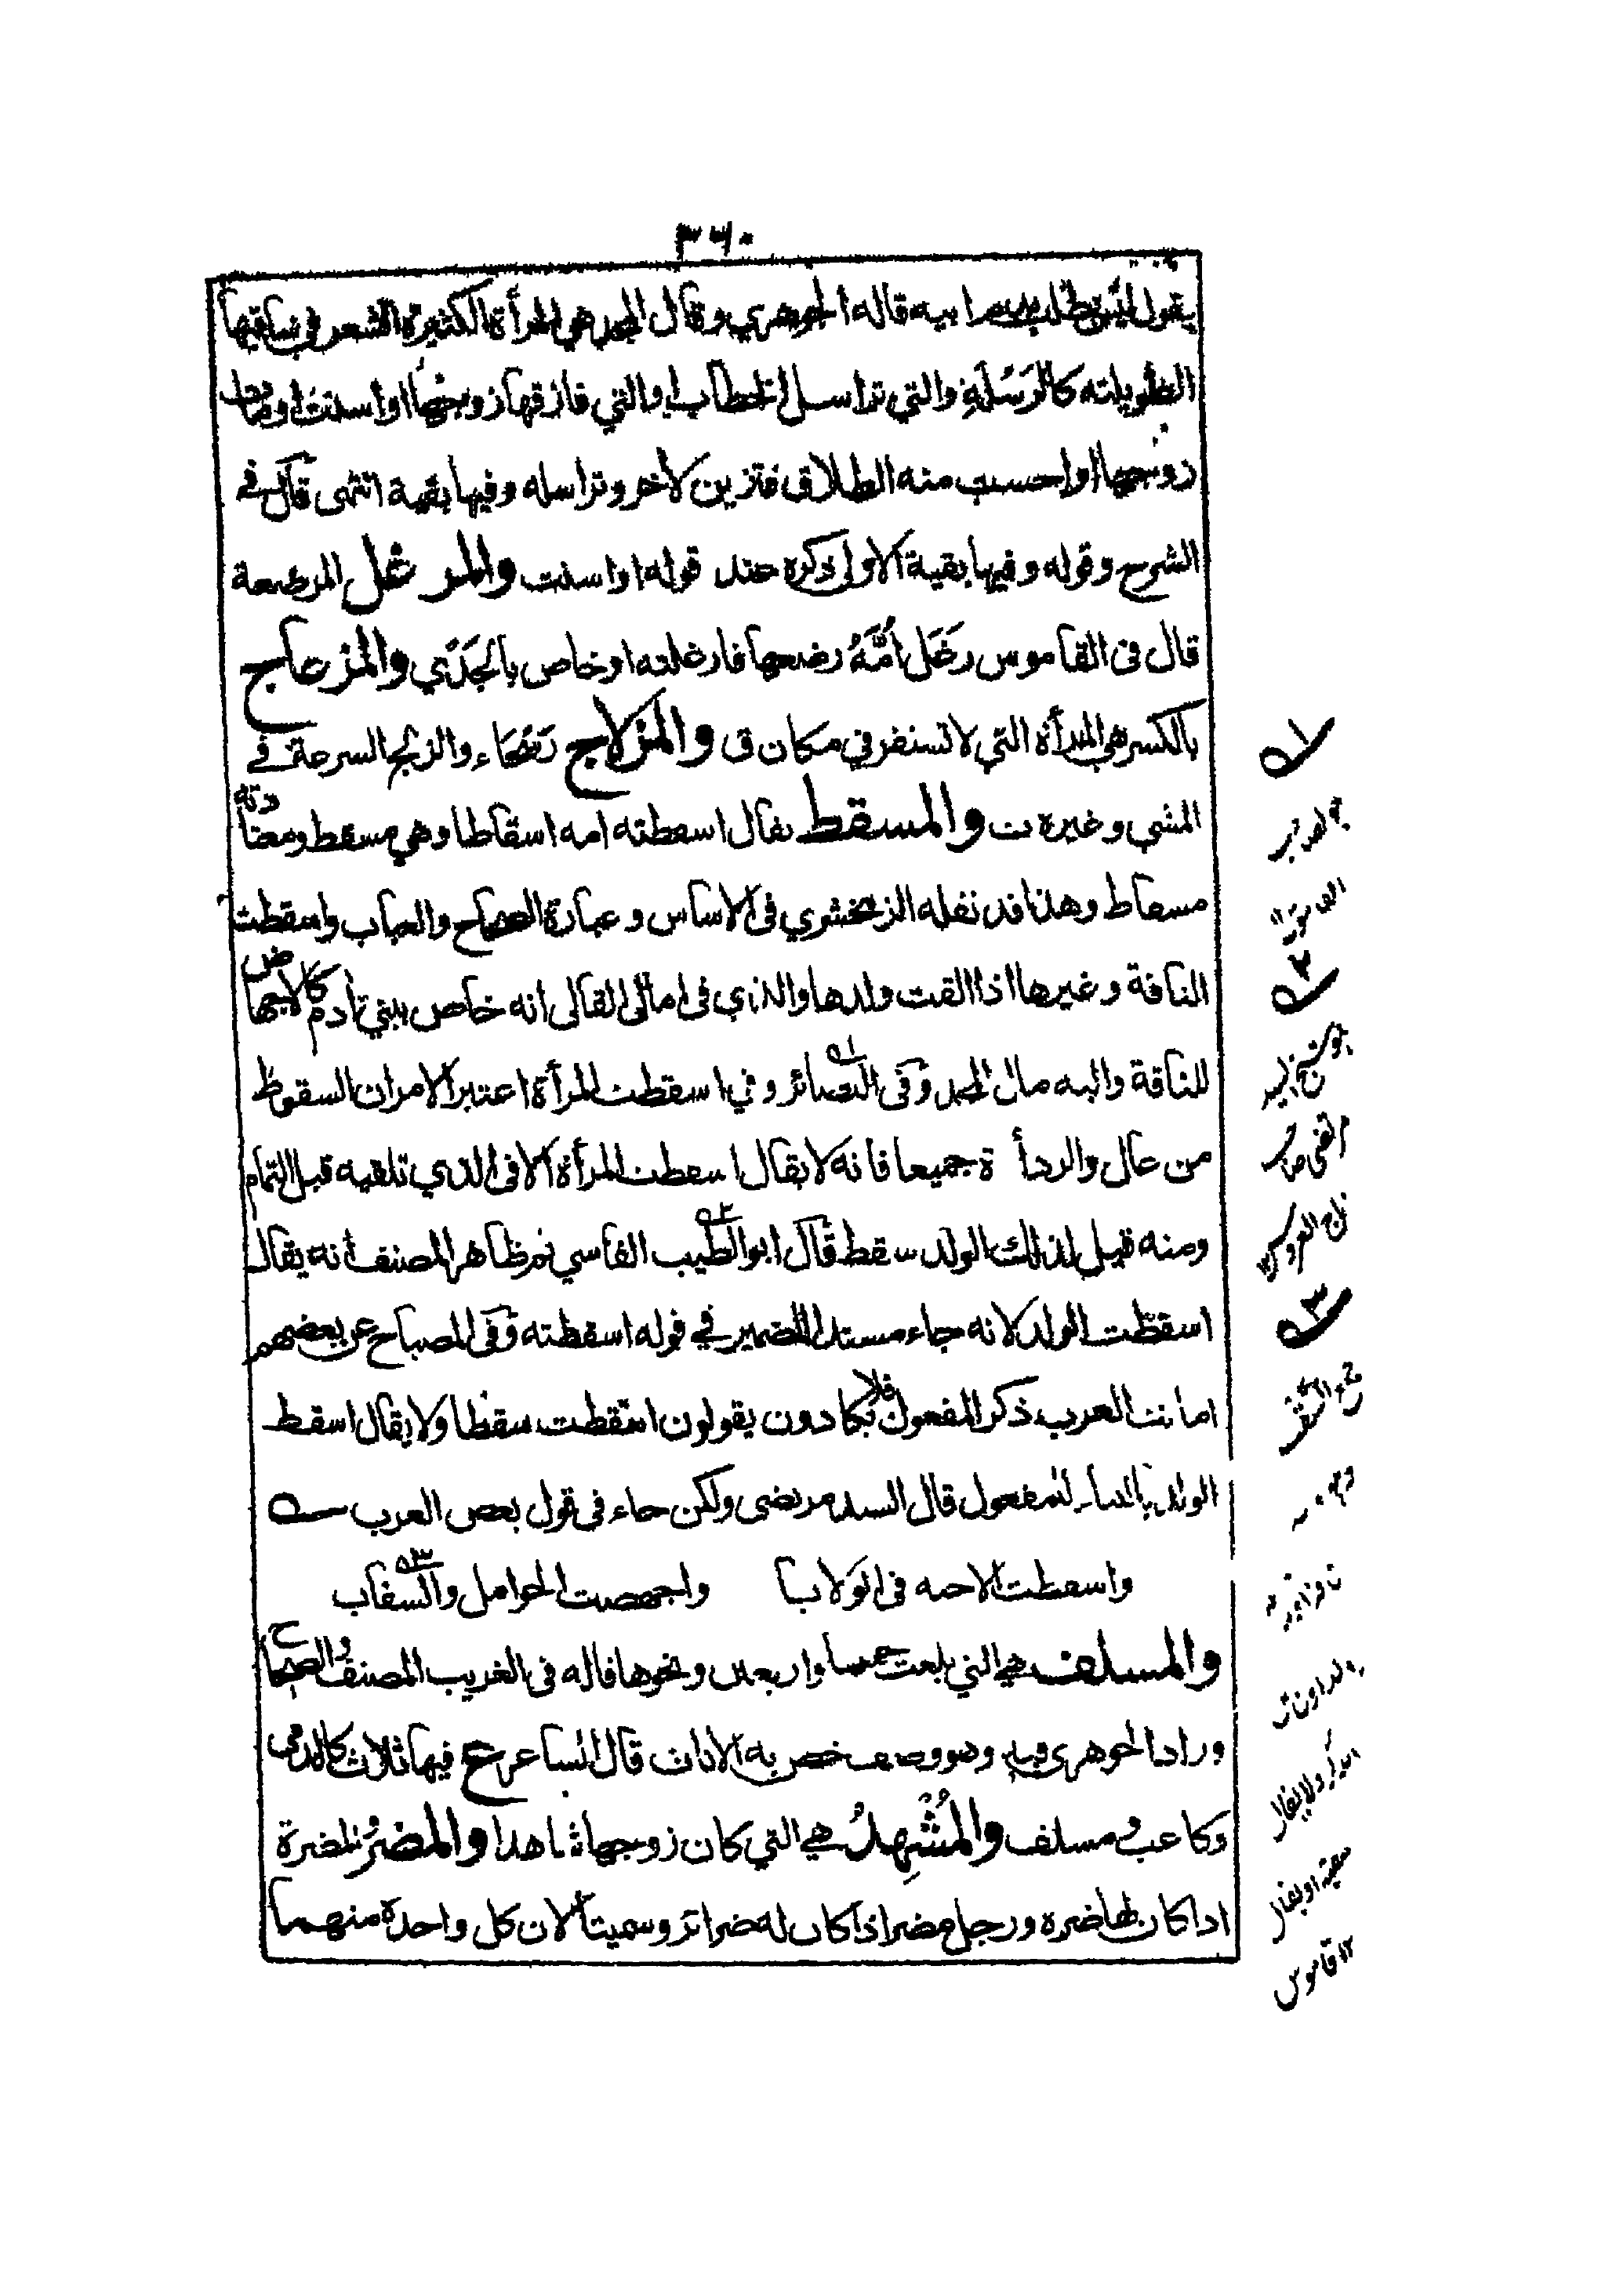 ٣٦٠
يقول ليس يطلب بدم ابيه قاله الجوهري وقال المجد هي المرأة الكثيرة الشعر في ساقيها
الطويلته كالرَسْلَةِ والتي تراسل الخطاب او التي فارقها زوجها او اسنت او مات
زوجها او احست منه الطلاق فتزين لاخر وتراسله وفيها بقية انتهى قال في
الشرح وقوله وفيها بقية الاولى ذكره عند قوله او اسنت والمرغل المرضعة
قال في القاموس رغَل أُمَّهُ رضعها فارغلته او خاص بالجَدْي والمزعاج
بالكسر هي المرأة التي لا تستقر في مكان ق والمزلاج رسحاء والزلج السرعة في
المشي وغيره ت والمسقط يقال اسقطته امه اسقاطا وهي مسقط ومعتادته
مسقاط وهذا قد نقله الزمخشري في الاساس وعبارة الصحاح والعباب واسقطت
الناقة وغيرها اذا القت ولدها والذي في امالي القالي انه خاص ببني آدم كالاجهاض
للناقة واليه مال المجد وفي البصائر وفي اسقطت المرأة اعتبر الامران السقوط
من عال والردأ ة جميعا فانه لا يقال اسقطت المرأة الا في الذي تلقيه قبل التمام
ومنه قيل لذلك الولد سقط قال ابو الطيب الفاسي ثم ظاهر المصنف انه يقال
اسقطت الولد لانه جاء مسندا للضمير في قوله اسقطته وفي المصباح عن بعضهم
اماتت العرب ذكر المفعول فلا يكادون يقولون اسقطت سقطا ولا يقال اسقط
الولد بالبناء للمفعول قال السيد مرتضى ولكن جاء في قول بعض العرب
واسقطت الاجنة في الولايا واجهضت الحوامل والسقاب
والمسلف هي التي بلغت خمسا واربعين ونحوها قاله في الغريب المصنف والصحاح
وزاد الجوهري وهو وصف خص به الاناث قال الشاعر ع فيها ثلاث كالدمى
وكاعب ومسلف والمُشْهِدُ هي التي كان زوجها شاهدا والمضرُ المضرة
اذا كان لها ضره ورجل مضر اذا كان له ضرائر وسميتا لان كل واحدة منهما
١
٢
٣
تاج العروس
١٢ قاموس